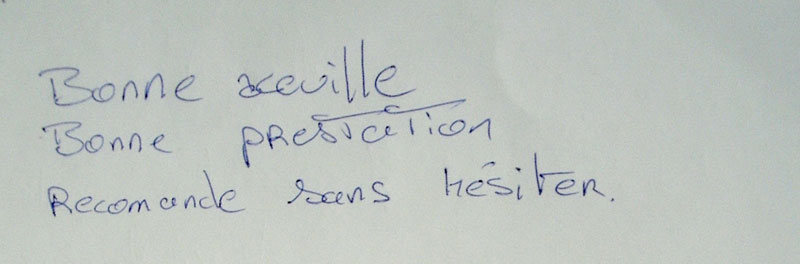 Bonne aceuille
Bonne prestation
Recomande sans hésiter.